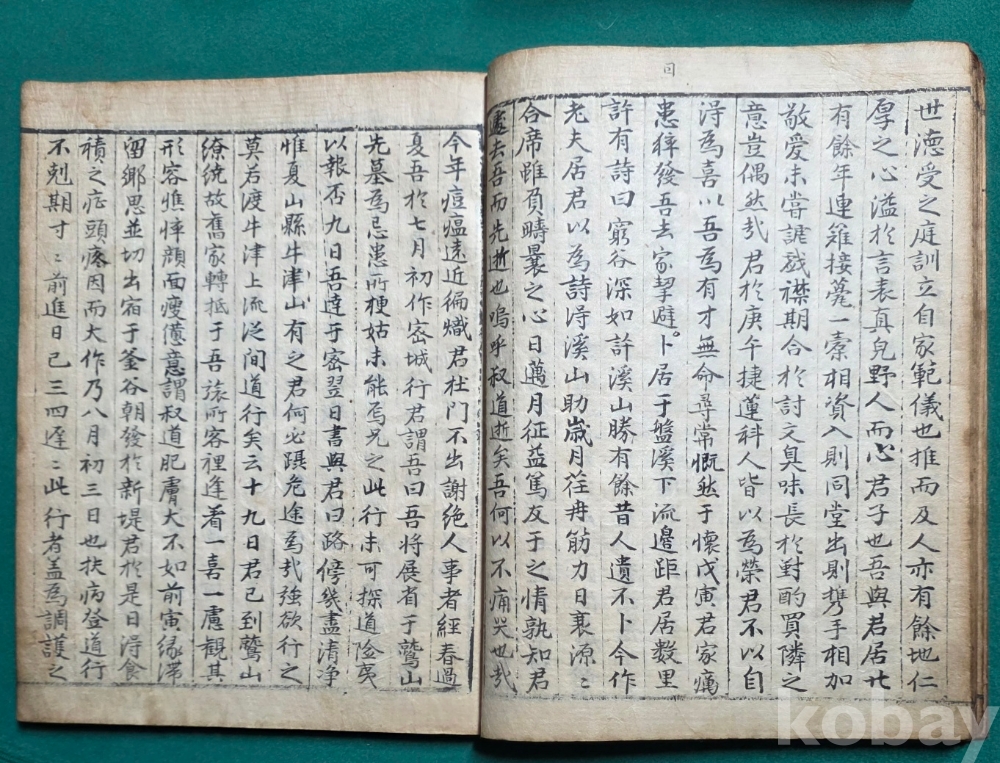 世德受之庭訓立自家範儀也推而及人亦有餘地仁
厚之心溢於言表真皃野人而心君子也吾與君居廿
有餘年連籬接薨一橐相資入則同堂出則携手相加
敬愛未嘗謔戱襟期合於討文臭味長於對酌買隣之
意豈偶然哉君於庚午捷蓮科人皆以為榮君不以自
淂為喜以吾為有才無命尋常慨然于懷戊寅君家癘
患猝發吾去家挈避。卜居于盤溪下流邊距君居数里
許有詩曰窮谷深如許溪山勝有餘昔人遺不卜今作
老夫居君以為詩淂溪山助歲月荏冉筋力日衰源〻
合席雖負疇曩之心日邁月征益篤友于之情孰知君
遽去吾而先逝也嗚呼叔道逝矣吾何以不痛哭也哉
今年痘瘟遠近徧熾君杜門不出謝絶人事者經春過
夏吾於七月初作密城行君謂吾曰吾將展省于鷲山
先墓為忌患所梗姑未能焉兄之此行未可探道險夷
以報否九日吾達于密翌日書與君曰路傍幾盡清净
惟夏山縣牛津山有之君何必躡危途為哉強欲行之
莫若渡牛津上流泛间道行矣云十九日君已到鷲山
繚統故舊家轉抵于吾旅所容裡逢着一喜一慮觀其
形容憔悴顔面瘦憊意謂叔道肥膚大不如前寅緣滯
留鄉思並切出宿于釜谷朝發於新堤君於是日淂食
積之症頭疼因而大作乃八月初三日也扶病登道行
不剋期寸〻前進日已三四遲〻此行者盖為調護之
回
kobay